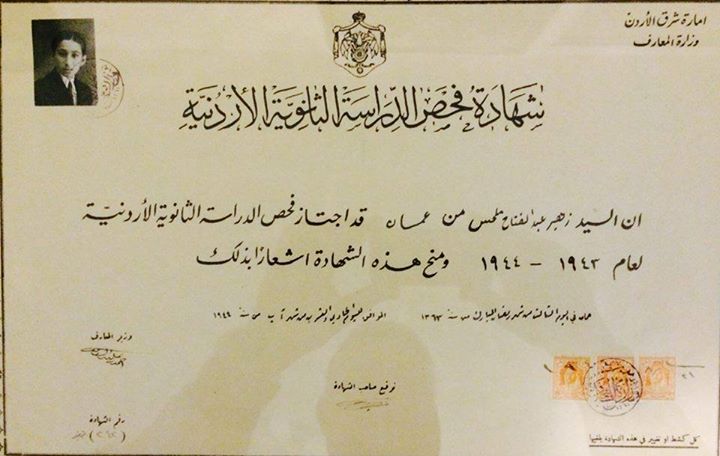 امارة شرق الأردن
وزارة المعارف
شهادة فحص الدراسة الثانوية الأردنية
ان السيد زهير عبد الفتاح ملحس من عمان قد اجتاز فحص الدراسة الثانوية الأردنية
لعام ١٩٤٣ - ١٩٤٤ ومنح هذه الشهادة اشعارًا بذلك
عمان في اليوم الثالث من شهر رمضان المبارك من سنة ١٣٦٣ الموافق لليوم الحادي والعشرين من شهر آب من سنة ١٩٤٤
وزير المعارف
توقيع صاحب الشهادة
رقم الشهادة
كل كشط او تغيير في هذه الشهادة يلغيها